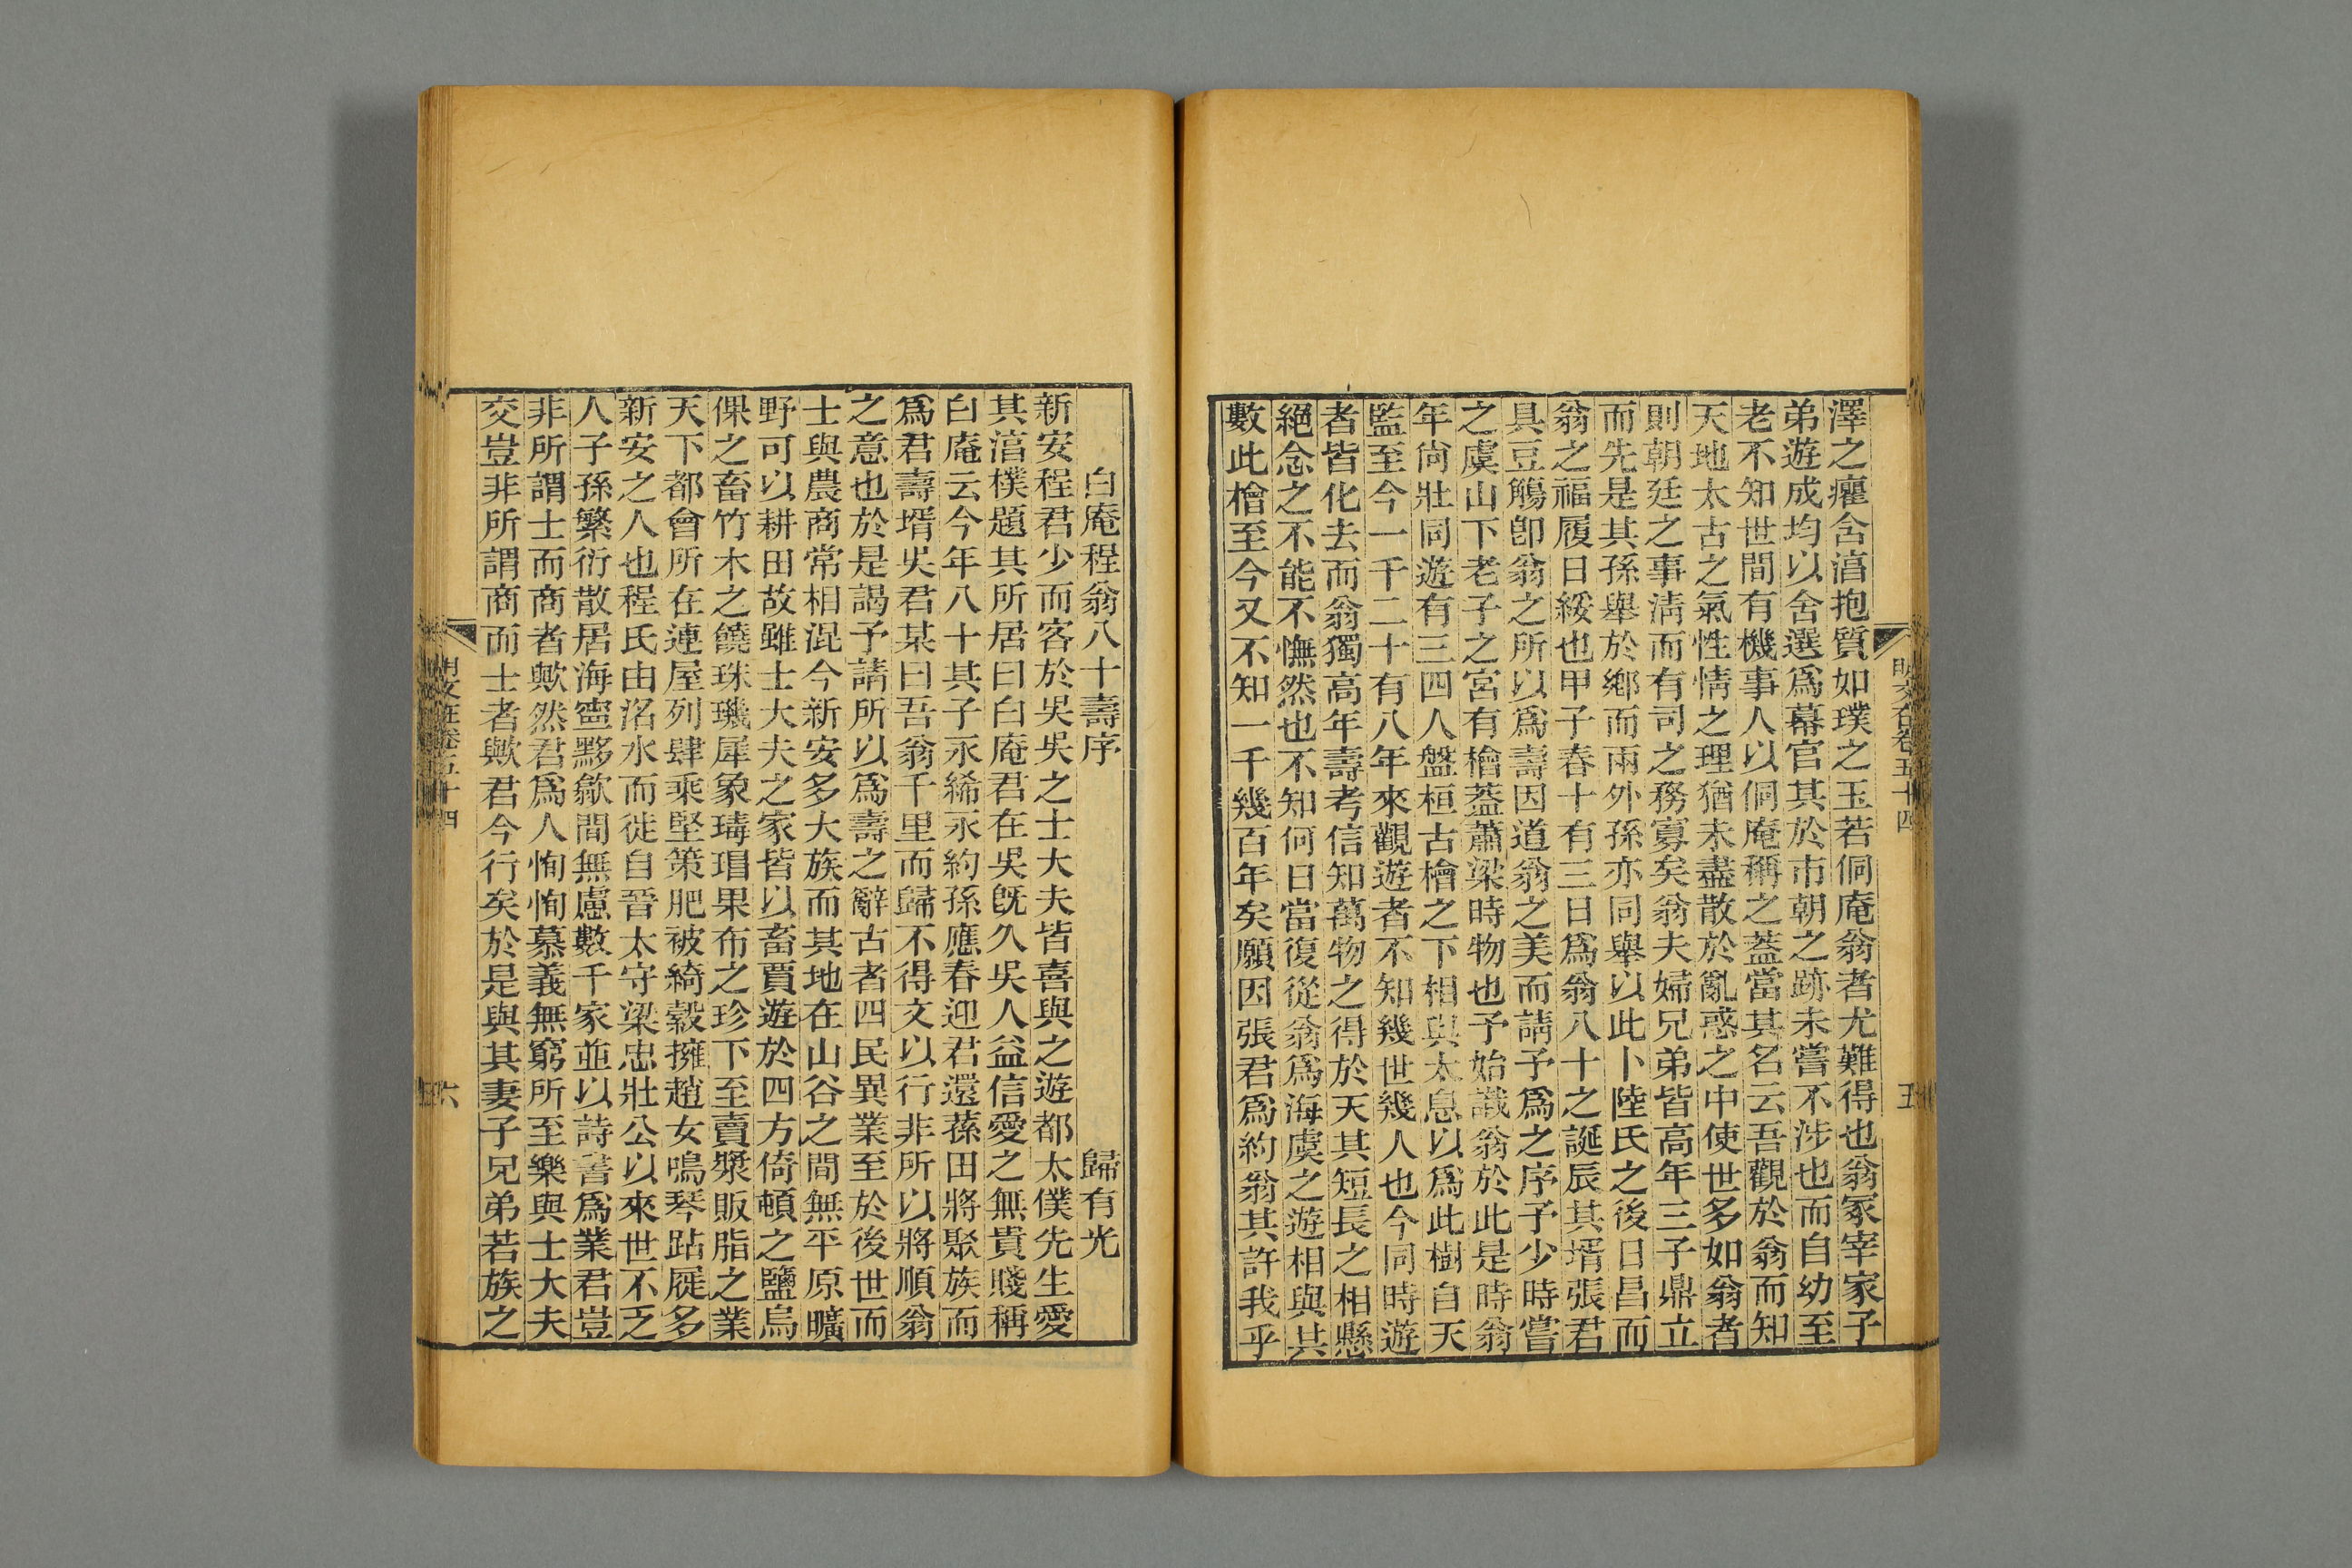 澤之癯含湻抱質如璞之玉若侗庵翁者尤難得也翁冢宰家子
弟遊成均以舍選爲幕官其於市朝之跡未嘗不涉也而自幼至
老不知世間有機事人以侗庵稱之葢當其名云吾觀於翁而知
天地太古之氣性情之理猶未盡散於亂惑之中使世多如翁者
則朝廷之事淸而有司之務寡矣翁夫婦兄弟皆高年三子鼎立
而先是其孫舉於鄉而兩外孫亦同舉以此卜陸氏之後日昌而
翁之福履日綏也甲子春十有三日爲翁八十之誕辰其壻張君
具豆觴卽翁之所以爲壽因道翁之美而請予爲之序予少時嘗
之虞山下老子之宮有檜葢蕭梁時物也予始識翁於此是時翁
年尙壯同遊有三四人盤桓古檜之下相與太息以爲此樹自天
監至今一千二十有八年來觀遊者不知幾世幾人也今同時遊
者皆化去而翁獨高年壽考信知萬物之得於天其短長之相懸
絕念之不能不憮然也不知何日當復從翁爲海虞之遊相與共
數此檜至今又不知一千幾百年矣願因張君爲約翁其許我乎
五
白庵程翁八十壽序 歸有光
新安程君少而客於吳吳之士大夫皆喜與之遊都太僕先生愛
其湻樸題其所居曰白庵君在吳旣久吳人益信愛之無貴賤稱
白庵云今年八十其子永綈永約孫應春迎君還蓀田將聚族而
爲君壽壻吳君某曰吾翁千里而歸不得文以行非所以將順翁
之意也於是謁予請所以爲壽之辭古者四民異業至於後世而
士與農商常相混今新安多大族而其地在山谷之間無平原曠
野可以耕田故雖士大夫之家皆以畜賈遊於四方倚頓之鹽烏
倮之畜竹木之饒珠璣犀象瑇瑁果布之珍下至賣漿販脂之業
天下都會所在連屋列肆乘堅策肥被綺縠擁趙女鳴琴跕屣多
新安之人也程氏由洺水而徙自晉太守梁忠壯公以來世不乏
人子孫繁衍散居海寧黟歙間無慮數千家並以詩書爲業君豈
非所謂士而商者歟然君爲人恂恂慕義無窮所至樂與士大夫
交豈非所謂商而士者歟君今行矣於是與其妻子兄弟若族之
六